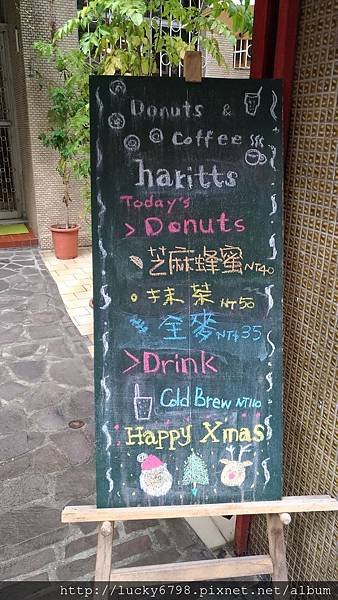 Donuts &
Coffee
haritts
Today's
> Donuts
芝麻蜂蜜 NT40
抹茶 NT50
全麥 NT$35
> Drink
Cold Brew NT110
Happy Xmas
http://lucky6798.pixnet.net/album